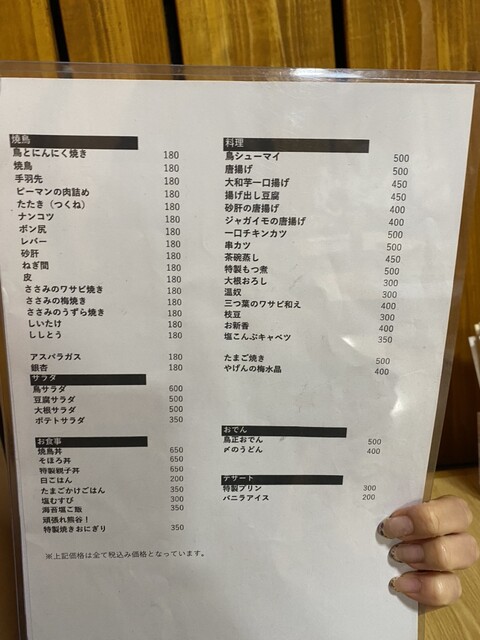 焼鳥
鳥とにんにく焼き 180
焼鳥 180
手羽先 180
ピーマンの肉詰め 180
たたき（つくね） 180
ナンコツ 180
ボン尻 180
レバー 180
砂肝 180
ねぎ間 180
皮 180
ささみのワサビ焼き 180
ささみの梅焼き 180
ささみのうずら焼き 180
しいたけ 180
ししとう 180
アスパラガス 180
銀杏 180
サラダ
鳥サラダ 600
豆腐サラダ 500
大根サラダ 500
ポテトサラダ 350
お食事
焼鳥丼 650
そぼろ丼 650
特製親子丼 650
白ごはん 200
たまごかけごはん 350
塩むすび 300
海苔塩こ飯 350
頑張れ熊谷！
特製焼きおにぎり 350
※上記価格は全て税込み価格となっています。
料理
鳥シューマイ 500
唐揚げ 500
大和芋一口揚げ 450
揚げ出し豆腐 450
砂肝の唐揚げ 400
ジャガイモの唐揚げ 400
一口チキンカツ 500
串カツ 500
茶碗蒸し 450
特製もつ煮 500
大根おろし 300
温奴 300
三つ葉のワサビ和え 400
枝豆 300
お新香 400
塩こんぶキャベツ 350
たまご焼き 500
やげんの梅水晶 400
おでん
鳥正おでん 500
〆のうどん 400
デザート
特製プリン 300
バニラアイス 200